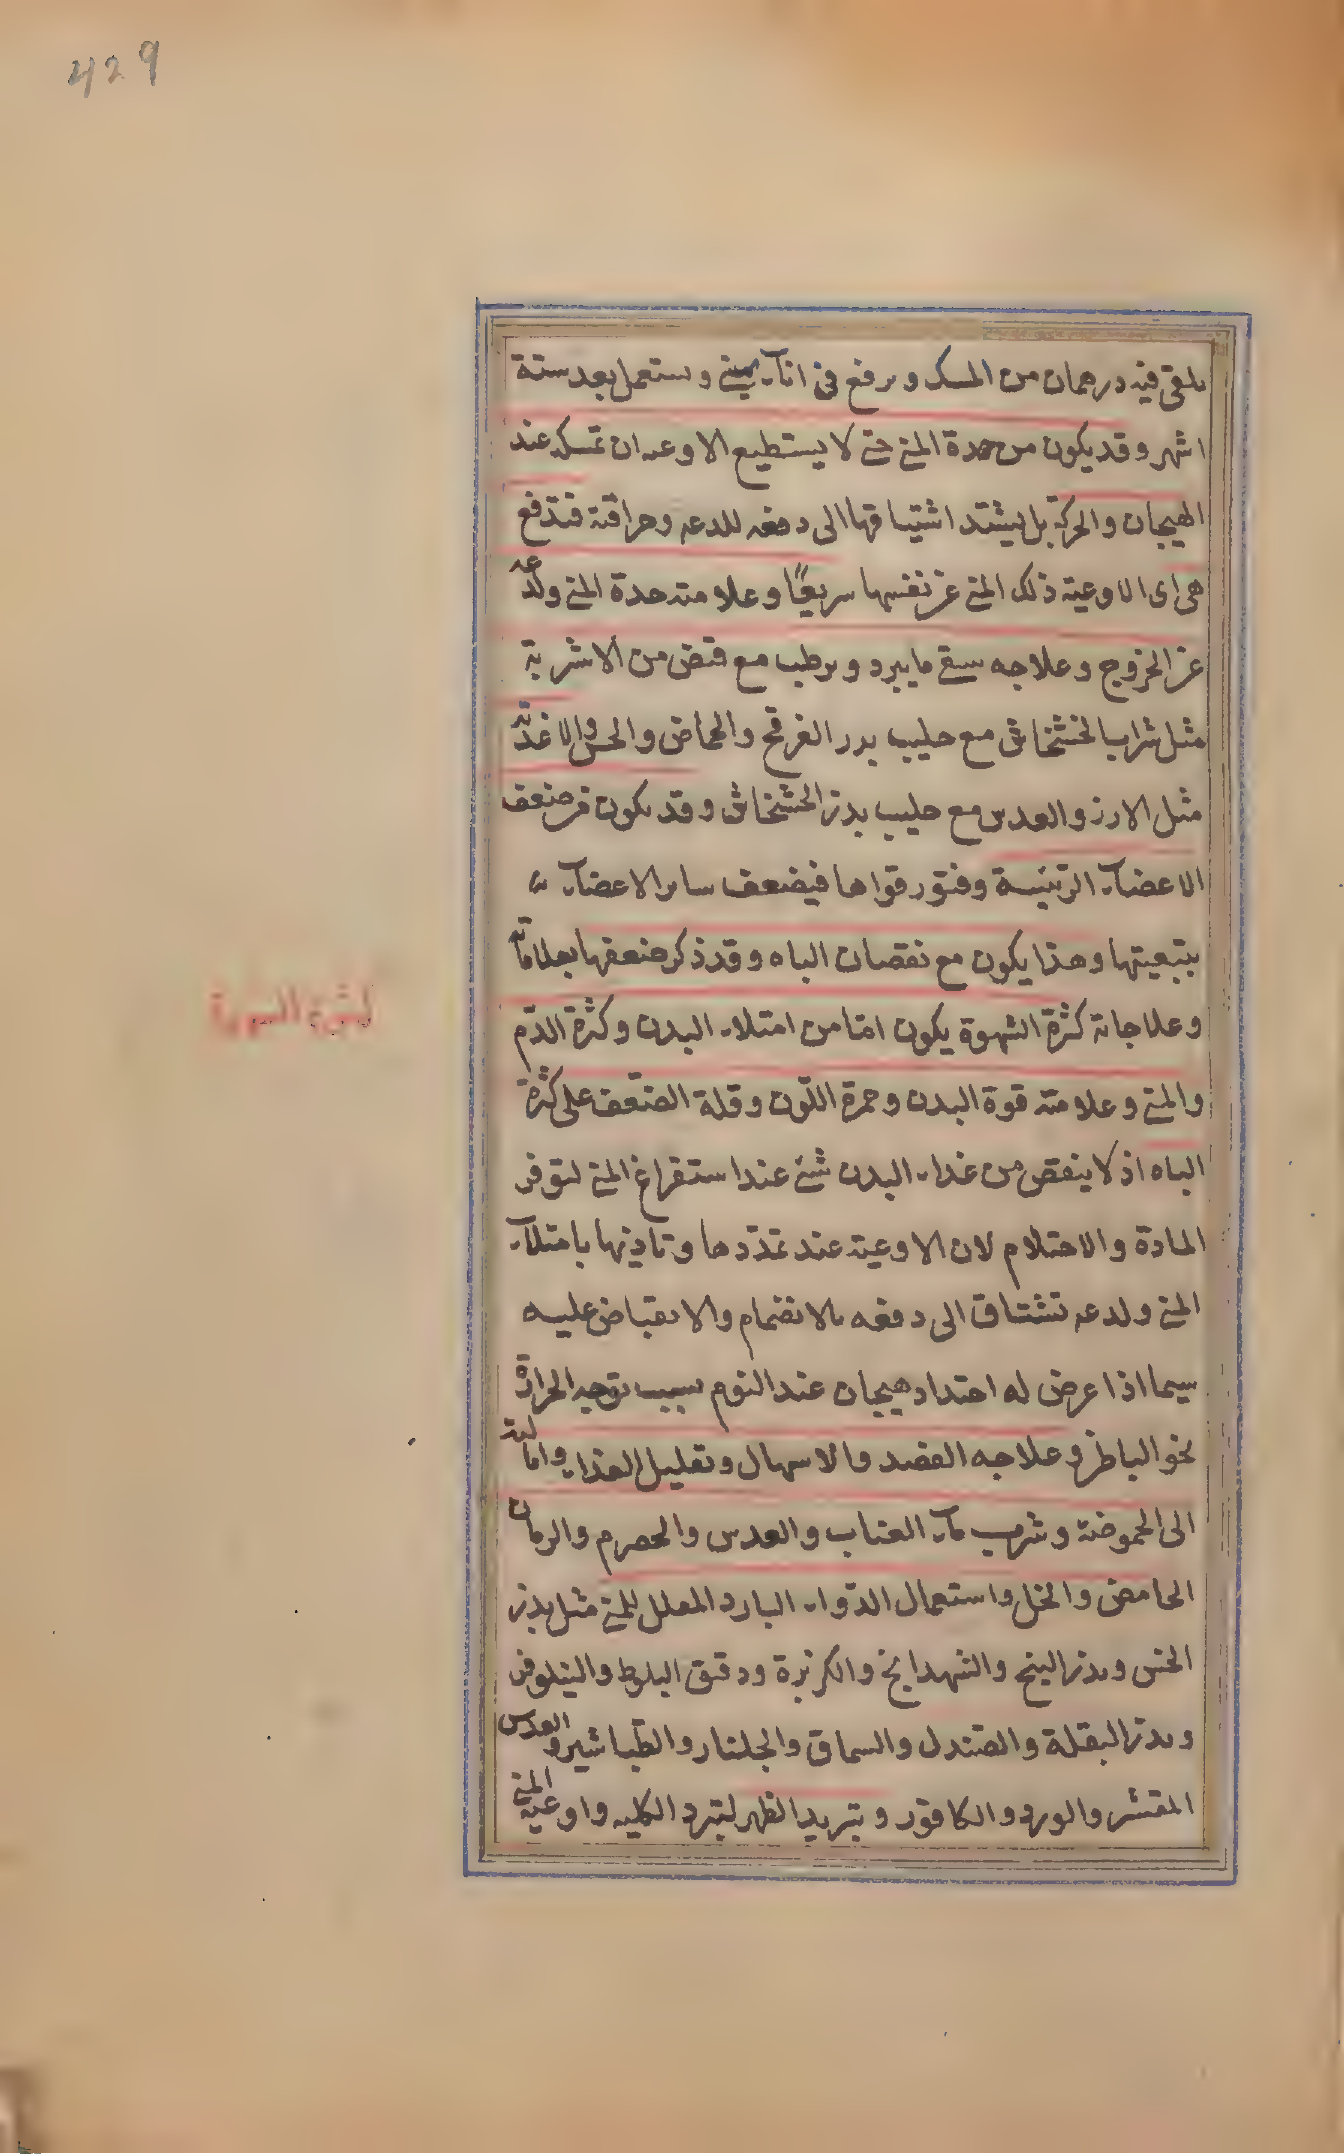 429
يلقى فيه درهمان من المسك ويرفع فى انآء صينى ويستعمل بعد ستة
اشهر وقد يكون من حدة المنى حتى لا يستطيع الاوعيه ان تمسكه عند
الهيجان والحركة بل يشتد اشتياقها الى دفعه للدعه وحراقته فتدفع
هى اى الاوعية ذلك المنى عن نفسها سريعًا وعلامته حدة المنى ولدعه
عند الخروج وعلاجه سقى ما يبرد ويرطب مع قبض من الاشربة
مثل شراب الخشخاش مع حليب بزر الفرفخ والحماض والخس والاغذية
مثل الارز والعدس مع حليب بذر الخشخاش وقد يكون من ضعف
الاعضآء الرئيسة وفتور قواها فيضعف ساير الاعضآء
بتبعيتها وهذا يكون مع نقصان الباه وقد ذكر ضعفها بعلاماته
وعلاجاته كثرة الشهوة يكون امّا من امتلاء البدن وكثرة الدّم
والمنى وعلامته قوة البدن وحمرة اللّون وقلة الضّعف على كثرة
الباه اذ لا ينقص من غذاء البدن شئ عند استفراغ المنى لتوفر
المادة والاحتلام لان الاوعية عند تمدّدها وتاذيها بامتلآء
المنى ولدعه تشتاق الى دفعه بالانضمام والانقباض عليه
سيما اذا عرض له احتداد وهيجان عند النوم بسبب توجه الحرارة
نحو الباطن وعلاجه الفصد والاسهال وتقليل الغذاء وامالته
الى الحموضة وشرب مآء العناب والعدس والحصرم والرمان
الحامض والخل واستعمال الدّواء البارد المقلل للمنى مثل بذر
الخس وبذر البنج والشهدانج والكزبرة ودقيق البلوط والنيلوفر
وبذر البقلة والصّندل والسماق والجلنار والطّباشير والعدس
المقشر والورد والكافور وتبريد الظهر لتبرد الكليه واوعية المنى
كثرة الشهوة